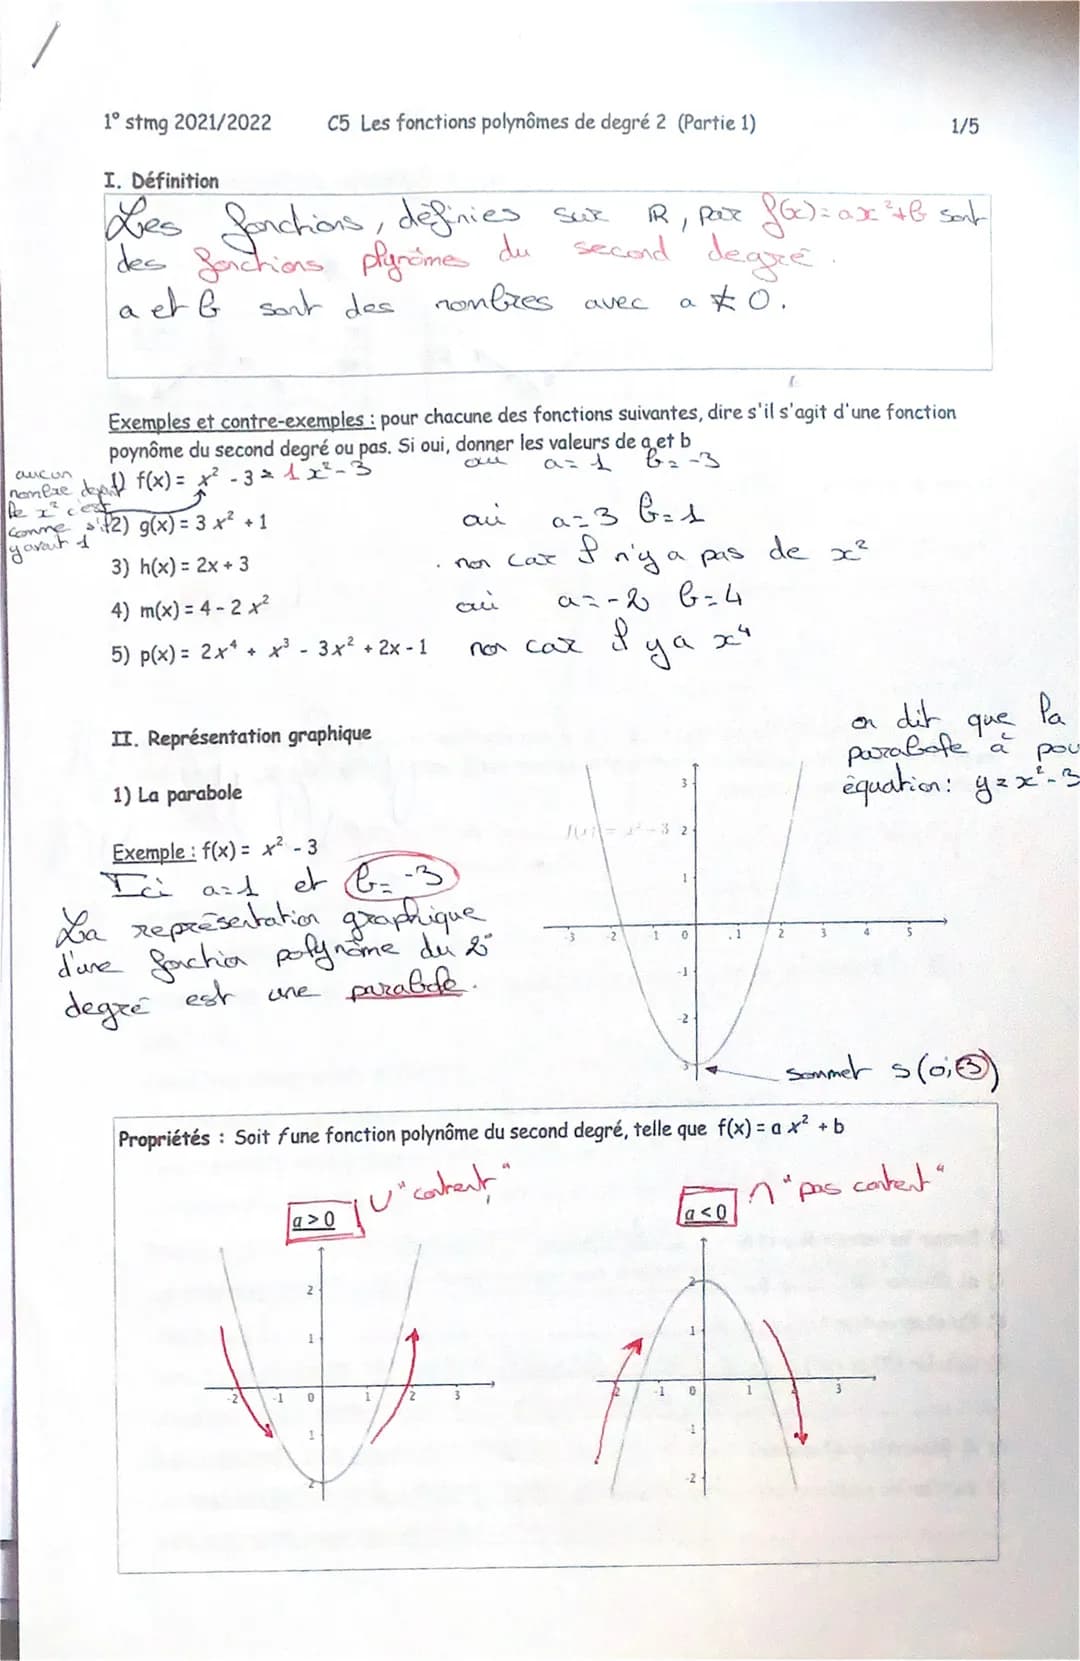 1° stmg 2021/2022 C5 Les fonctions polynômes de degré 2 (Partie 1) 1/5
I. Définition
Les fonctions, définies sur ℝ, par f(x)=ax²+b sont
des fonctions plynômes du second degré.
a et b sont des nombres avec a ≠ 0.
Exemples et contre-exemples : pour chacune des fonctions suivantes, dire s'il s'agit d'une fonction
poynôme du second degré ou pas. Si oui, donner les valeurs de a et b
aucun
nombre dvt
le x² c'est
comme s'il
y avait 1
1) f(x) = x² - 3 = 1x² - 3 oui a=1 b=-3
2) g(x) = 3 x² + 1 oui a=3 b=1
3) h(x) = 2x + 3 non car il n'y a pas de x²
4) m(x) = 4 - 2 x² oui a=-2 b=4
5) p(x) = 2x⁴ + x³ - 3x² + 2x - 1 non car il y a x⁴
II. Représentation graphique
on dit que la
parabole à pou
équation: y=x²-3
1) La parabole
Exemple : f(x) = x² - 3
Ici a=1 et b=-3
La représentation graphique
d'une fonction polynôme du 2°
degré est une parabole.
f(x) = x² - 3
3
2
1
-3 -2 -1 0 1 2 3 4 5
-1
-2
-3
Sommet S(0;-3)
Propriétés : Soit f une fonction polynôme du second degré, telle que f(x) = a x² + b
a > 0 U "content"
a < 0 ∩ "pas content"
2
1
-2 -1 0 1 2 3
1
2
2
1
2 -1 0 1 2 3
-1
-2